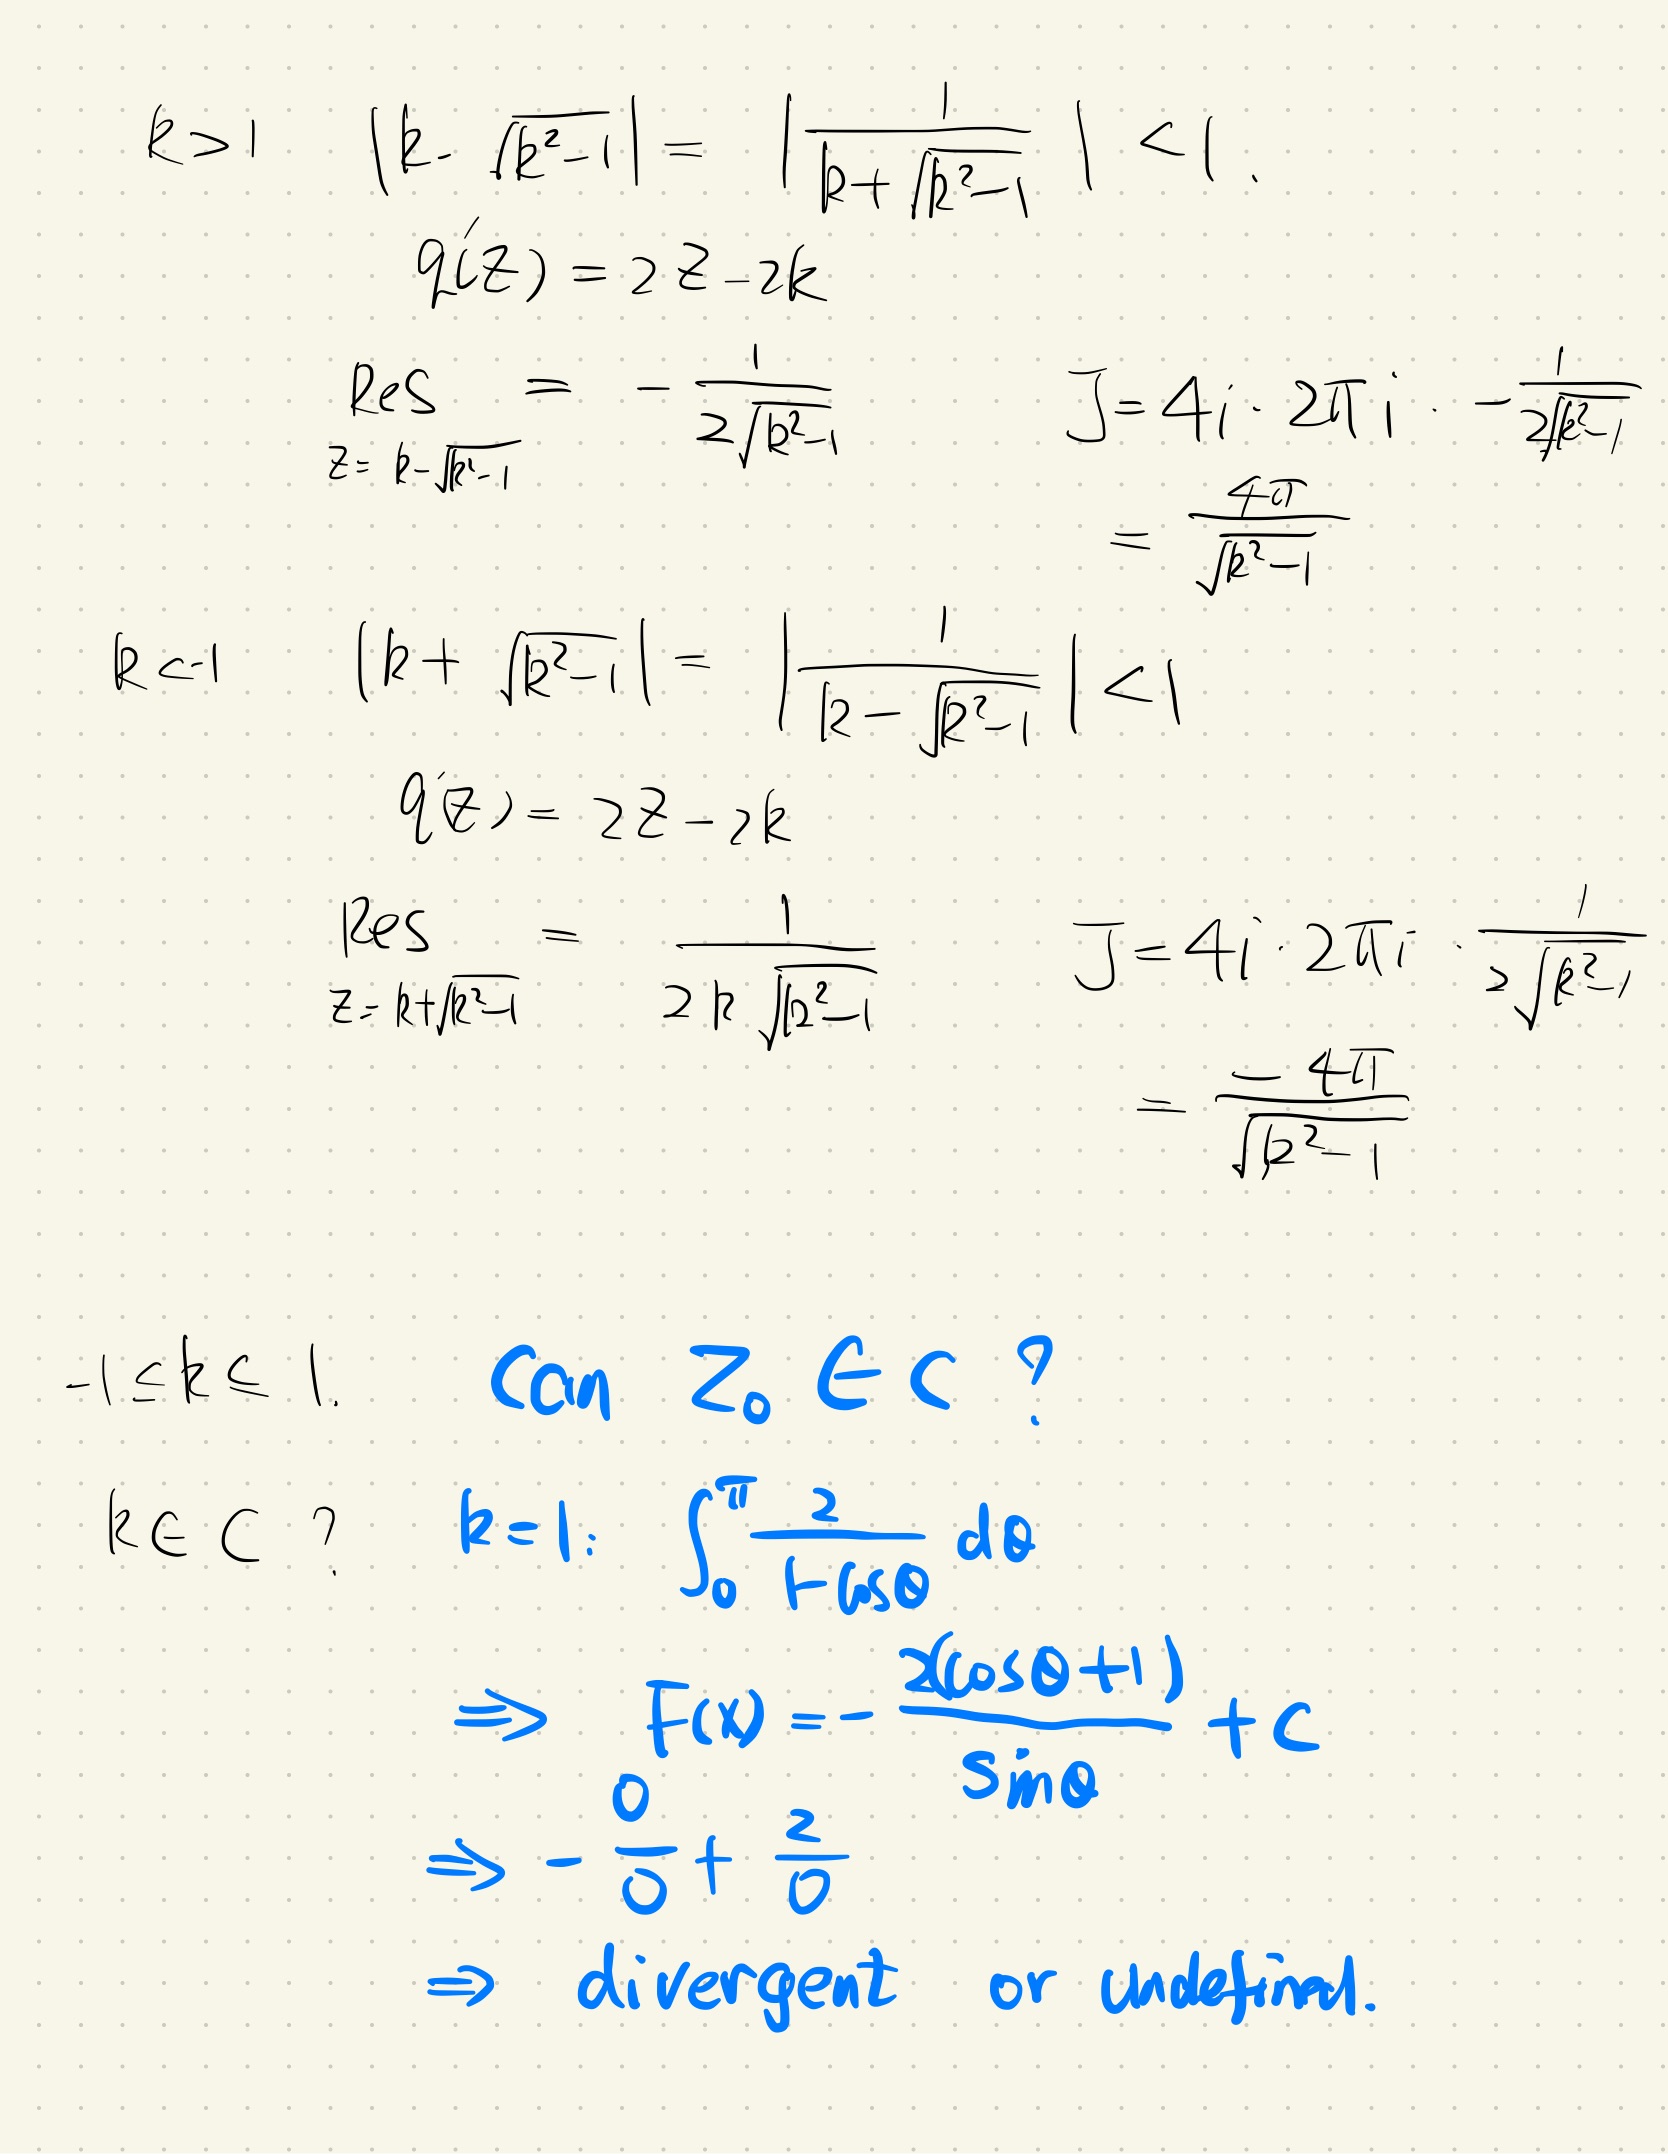 k > 1 |k - √(k²-1)| = |1/(k + √(k²-1))| < 1.
q'(z) = 2z - 2k
Res z = k - √(k²-1) = - 1/(2√(k²-1)) J = 4i · 2πi · - 1/(2√(k²-1))
= 4π/√(k²-1)
k < -1 |k + √(k²-1)| = |1/(k - √(k²-1))| < 1
q'(z) = 2z - 2k
Res z = k + √(k²-1) = 1/(2k√(k²-1)) J = 4i · 2πi · 1/(2√(k²-1))
= -4π/√(k²-1)
-1 ≤ k ≤ 1. Can z₀ ∈ C ?
k ∈ C ? k = 1: ∫₀^π 2/(1-cosθ) dθ
⇒ F(x) = - 2(cosθ+1)/sinθ + C
⇒ - 0/0 + 2/0
⇒ divergent or undefined.